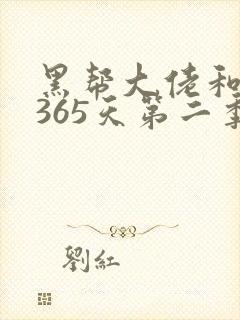 黑帮大佬和
365天第二季
劉紅